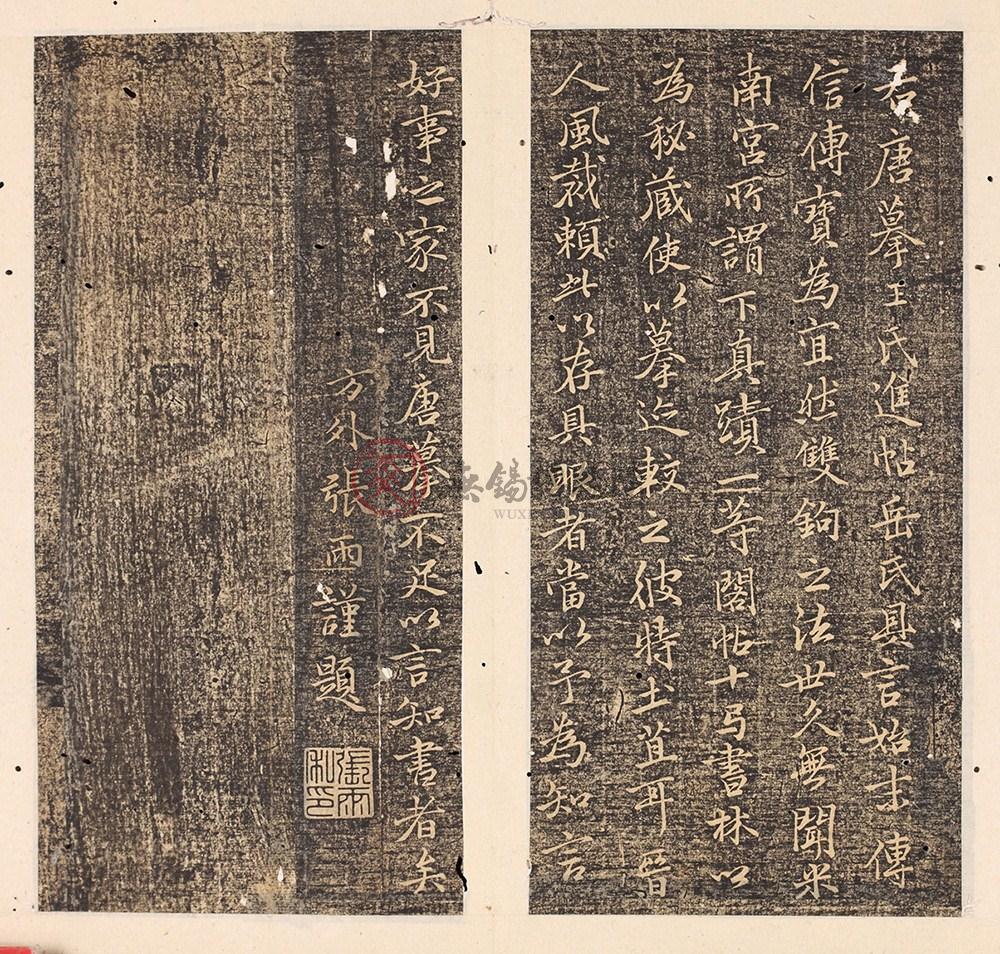 右唐摹王氏進帖岳氏具言始末傳
信傳寶為宜然雙鉤之法世久無聞米
南宮所謂下真蹟一等閣帖十号書林以
為秘藏使以摹迹較之彼特土苴耳晉
人風裁賴此以存具眼者當以予為知言
好事之家不見唐摹不足以言知書者矣
方外張雨謹題
張雨私印